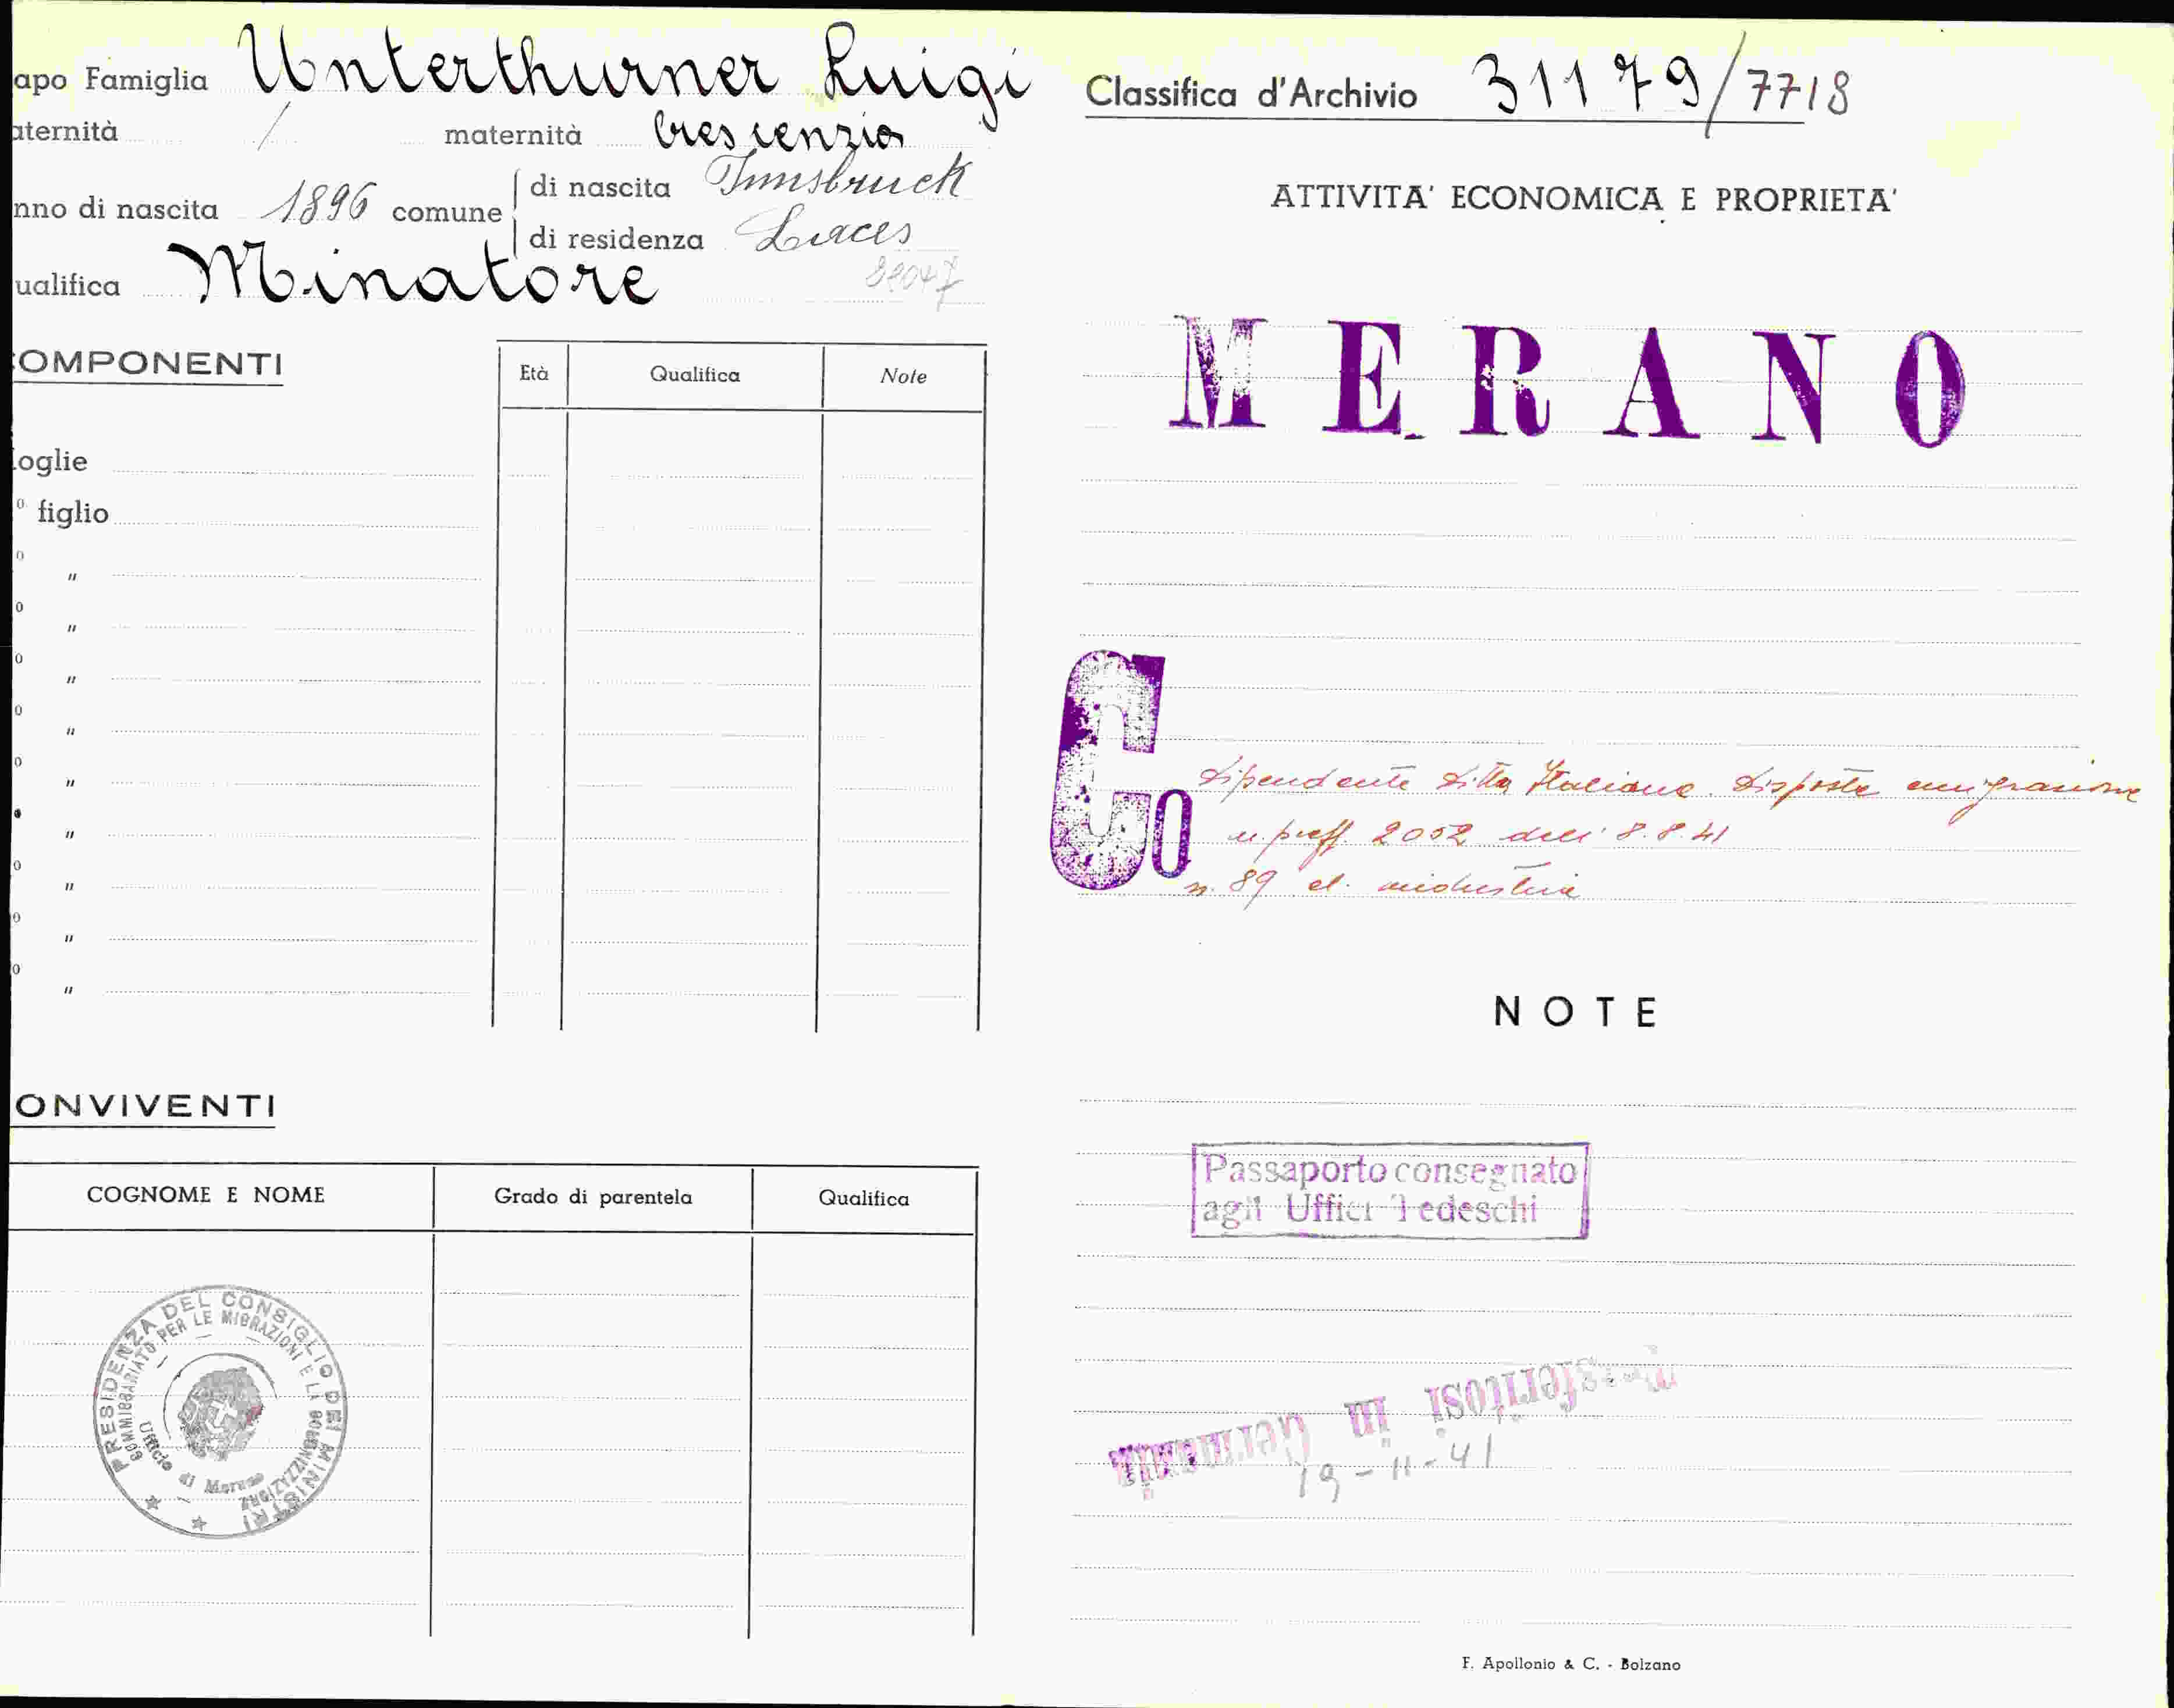 apo Famiglia Unterthurner Luigi
aternità / maternità Crescenzia
nno di nascita 1896 comune di nascita Innsbruck
di residenza Laces
ualifica Minatore
OMPONENTI
Età Qualifica Note
oglie
o figlio
o "
o "
o "
o "
o "
"
o "
o "
o "
ONVIVENTI
COGNOME E NOME Grado di parentela Qualifica
PRESIDENZA DEL CONSIGLIO DEI MINISTRI
COMMISSARIATO PER LE MIGRAZIONI E LA COLONIZZAZIONE
Ufficio di Merano
Classifica d'Archivio 31179/7718
ATTIVITA' ECONOMICA E PROPRIETA'
MERANO
Co
Dipendente Ditta Italiana. Disposta emigrazione
n. pref. 2052 dell' 8.8.41
n. 89 el. industria
NOTE
Passaporto consegnato
agli Uffici Tedeschi
Trasferitosi in Germania
19-11-41
F. Apollonio & C. - Bolzano